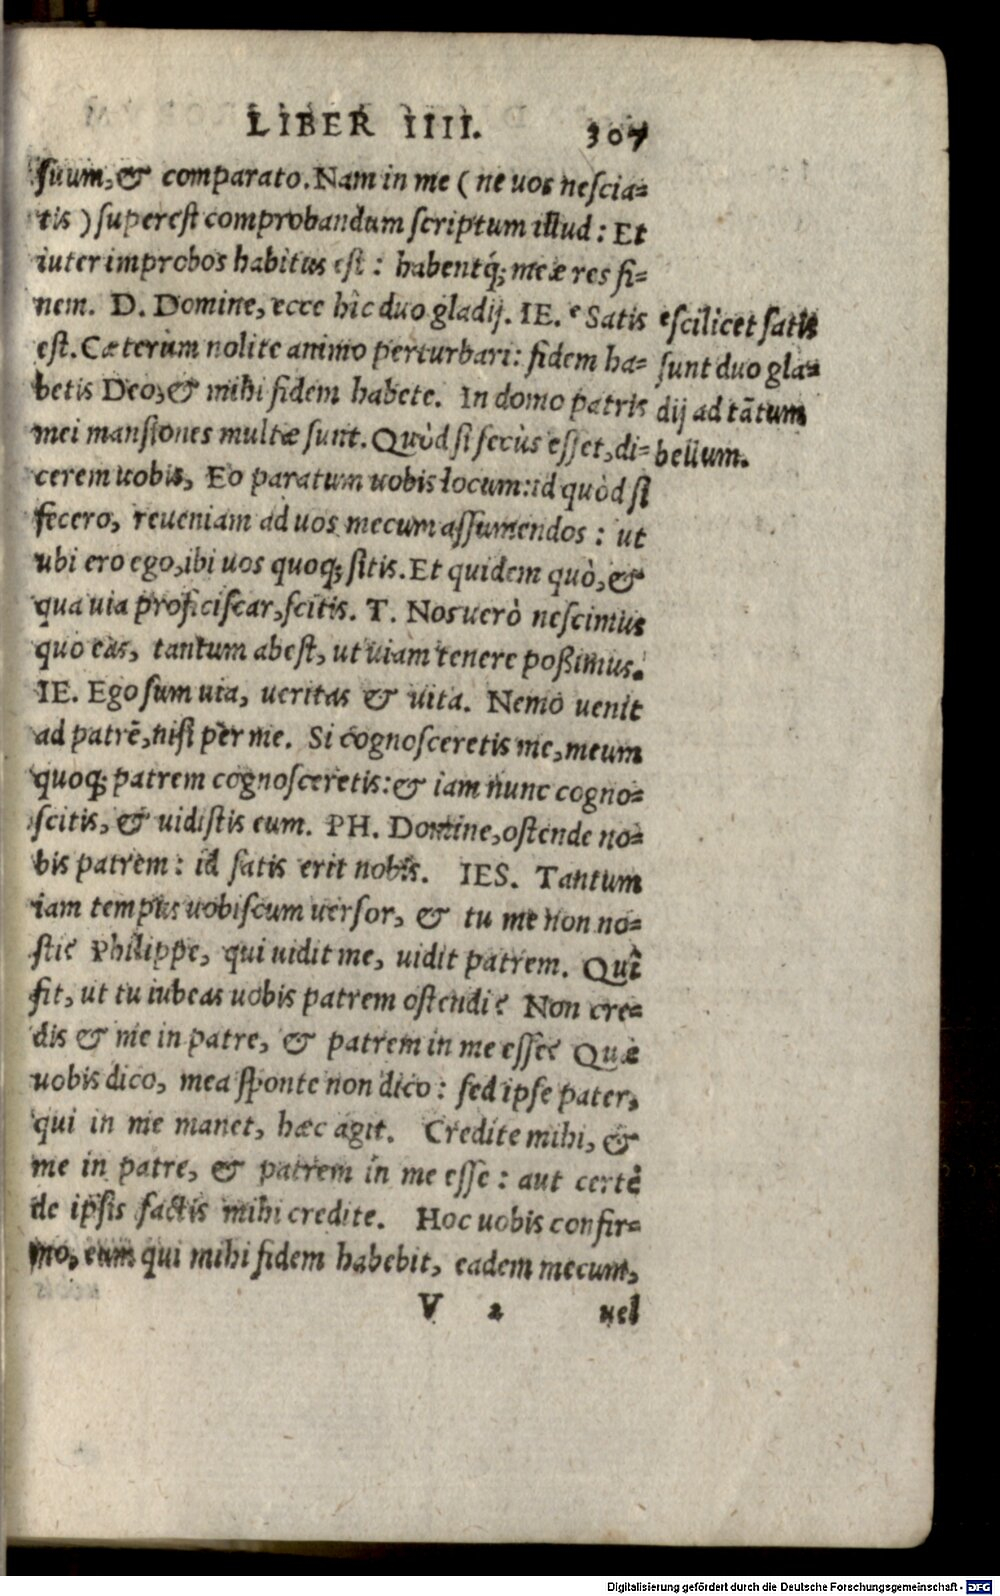 LIBER IIII. 307
suum, & comparato. Nam in me ( ne uos nescia=
tis ) superest comprobandum scriptum illud: Et
iuter improbos habitus est: habentq́; meæ res fi=
nem. D. Domine, ecce hîc duo gladij. IE. ᵉ Satis
est. Cæterùm nolite animo perturbari: fidem ha=
betis Deo, & mihi fidem habete. In domo patris
mei mansiones multæ sunt. Quòd si secùs esset, di=
cerem uobis, Eo paratum uobis locum: id quòd si
fecero, reueniam ad uos mecum assumendos: ut
ubi ero ego, ibi uos quoq; sitis. Et quidem quò, &
qua uia proficiscar, scitis. T. Nos uerò nescimus
quo eas, tantum abest, ut uiam tenere poßimus.
IE. Ego sum uia, ueritas & uita. Nemo uenit
ad patrẽ, nisi per me. Si cognosceretis me, meum
quoq; patrem cognosceretis: & iam nunc cogno=
scitis, & uidistis eum. PH. Domine, ostende no=
bis patrem: id satis erit nobis. IES. Tantum
iam tempus uobiscum uersor, & tu me non no=
sti? Philippe, qui uidit me, uidit patrem. Quî
fit, ut tu iubeas uobis patrem ostendi? Non cre=
dis & me in patre, & patrem in me esse? Quæ
uobis dico, mea sponte non dico: sed ipse pater,
qui in me manet, hæc agit. Credite mihi, &
me in patre, & patrem in me esse: aut certè
de ipsis factis mihi credite. Hoc uobis confir=
mo, eum qui mihi fidem habebit, eadem mecum,
V 2 uel
ᵉ scilicet satis
sunt duo gla=
dij ad tãtum
bellum.
Digitalisierung gefördert durch die Deutsche Forschungsgemeinschaft - DFG